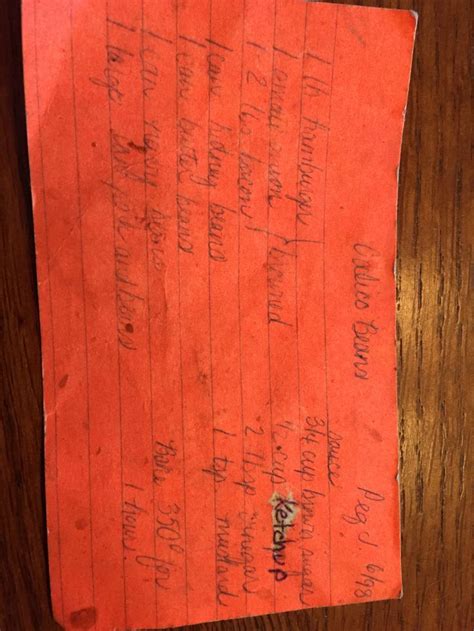 Calico Beans Peg J. 6/98
1 lb hamburger
1 small onion browned
1-2 lbs bacon
1 can kidney beans
1 can butter beans
1 can navy beans
1 large pork and beans
Sauce
3/4 cup brown sugar
1/2 cup Ketchup
2 tbsp vinegar
1 tsp mustard
Bake 350° for
1 hour